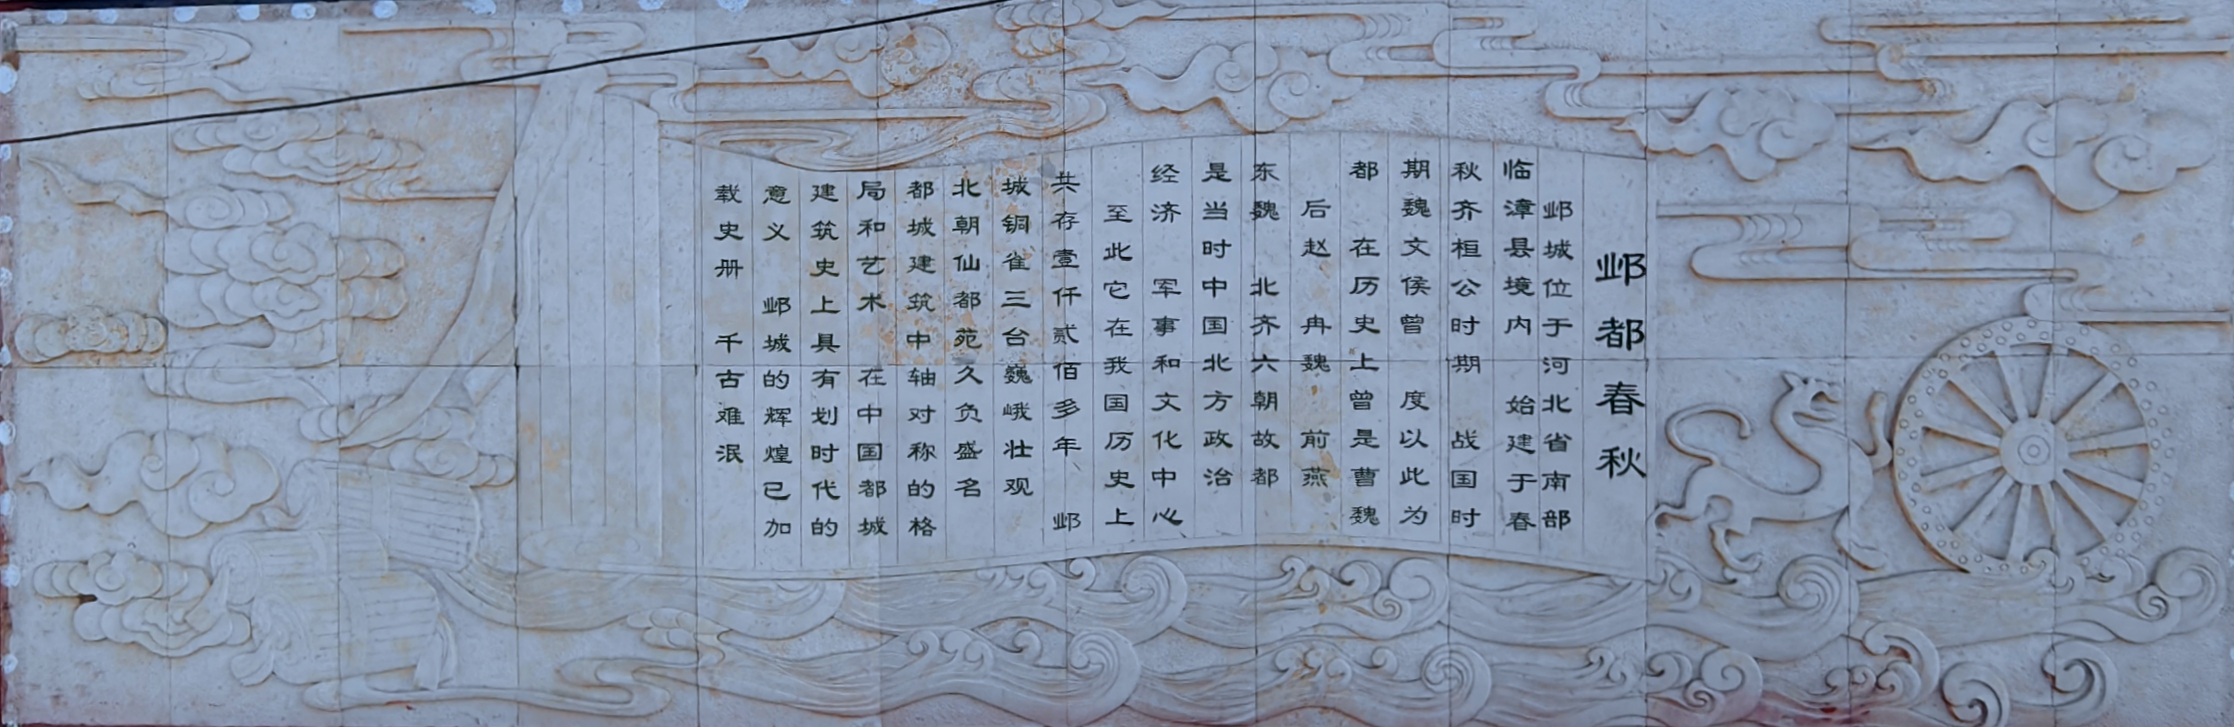 邺都春秋
邺城位于河北省南部
临漳县境内 始建于春
秋齐桓公时期 战国时
期魏文侯曾 度以此为
都 在历史上曾是曹魏
后赵 冉魏 前燕
东魏 北齐六朝故都
是当时中国北方政治
经济 军事和文化中心
至此它在我国历史上
共存壹仟贰佰多年 邺
城铜雀三台巍峨壮观
北朝仙都苑久负盛名
都城建筑中轴对称的格
局和艺术 在中国都城
建筑史上具有划时代的
意义 邺城的辉煌已加
载史册 千古难泯